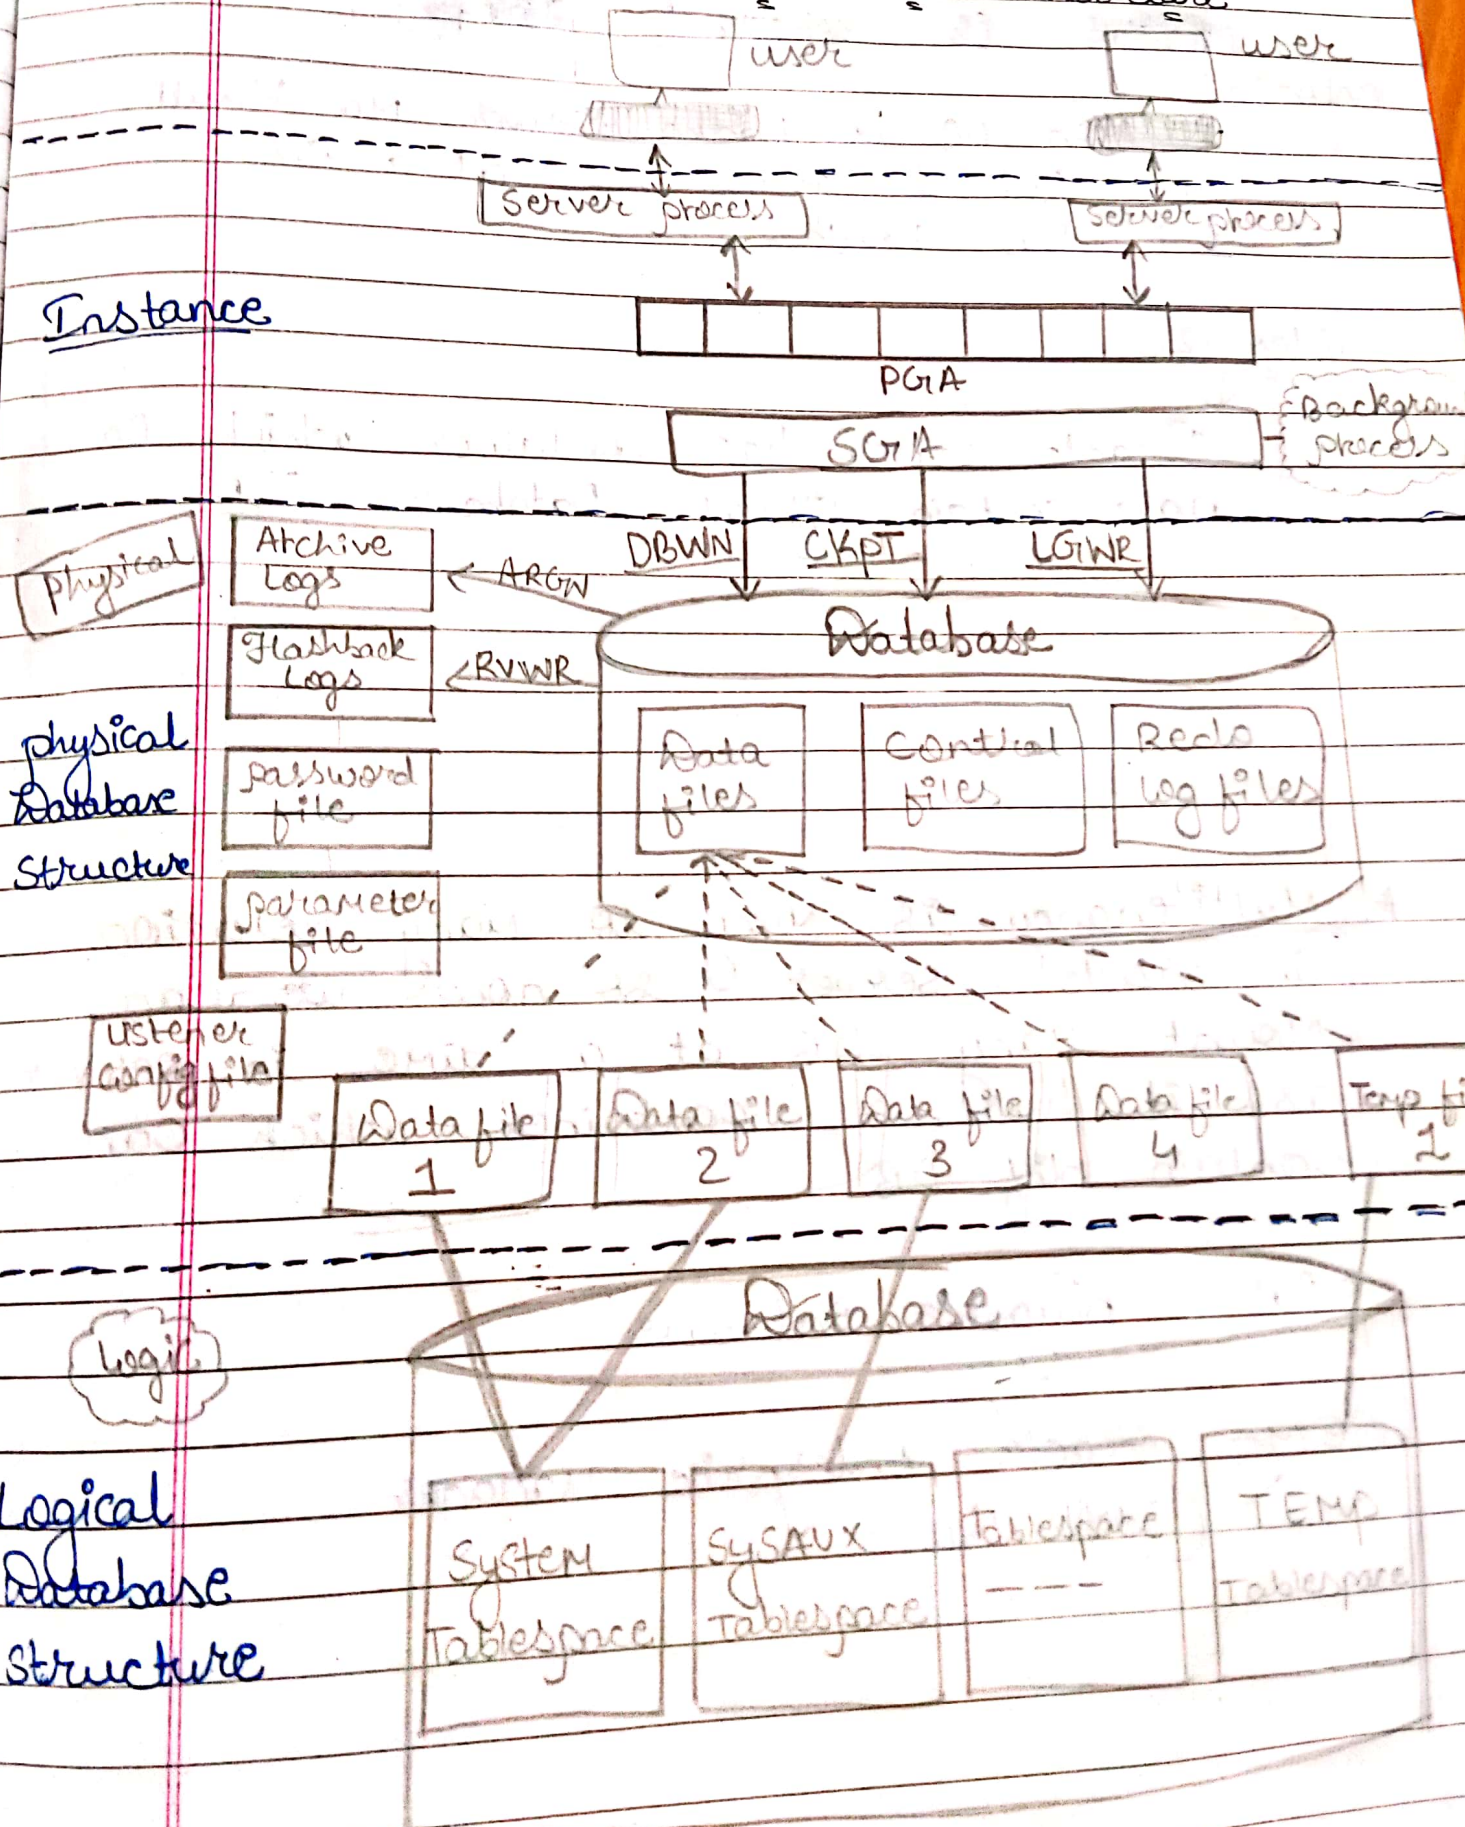 user
user
Server process
Server process
Instance
PGA
SGA
process
Physical
Archive
Logs
ARGW
DBWN
CKPT
LGWR
Database
Flashback
Logs
RVWR
Physical
Database
Structure
password
file
Data
files
Control
files
Redo
Log files
parameter
file
Listener
Config file
Data file
1
Data file
2
Data file
3
Data file
4
Temp
1
Database
Logic
Logical
Database
Structure
System
Tablespace
SYSAUX
Tablespace
Tablespace
----
TEMP
Tablespace